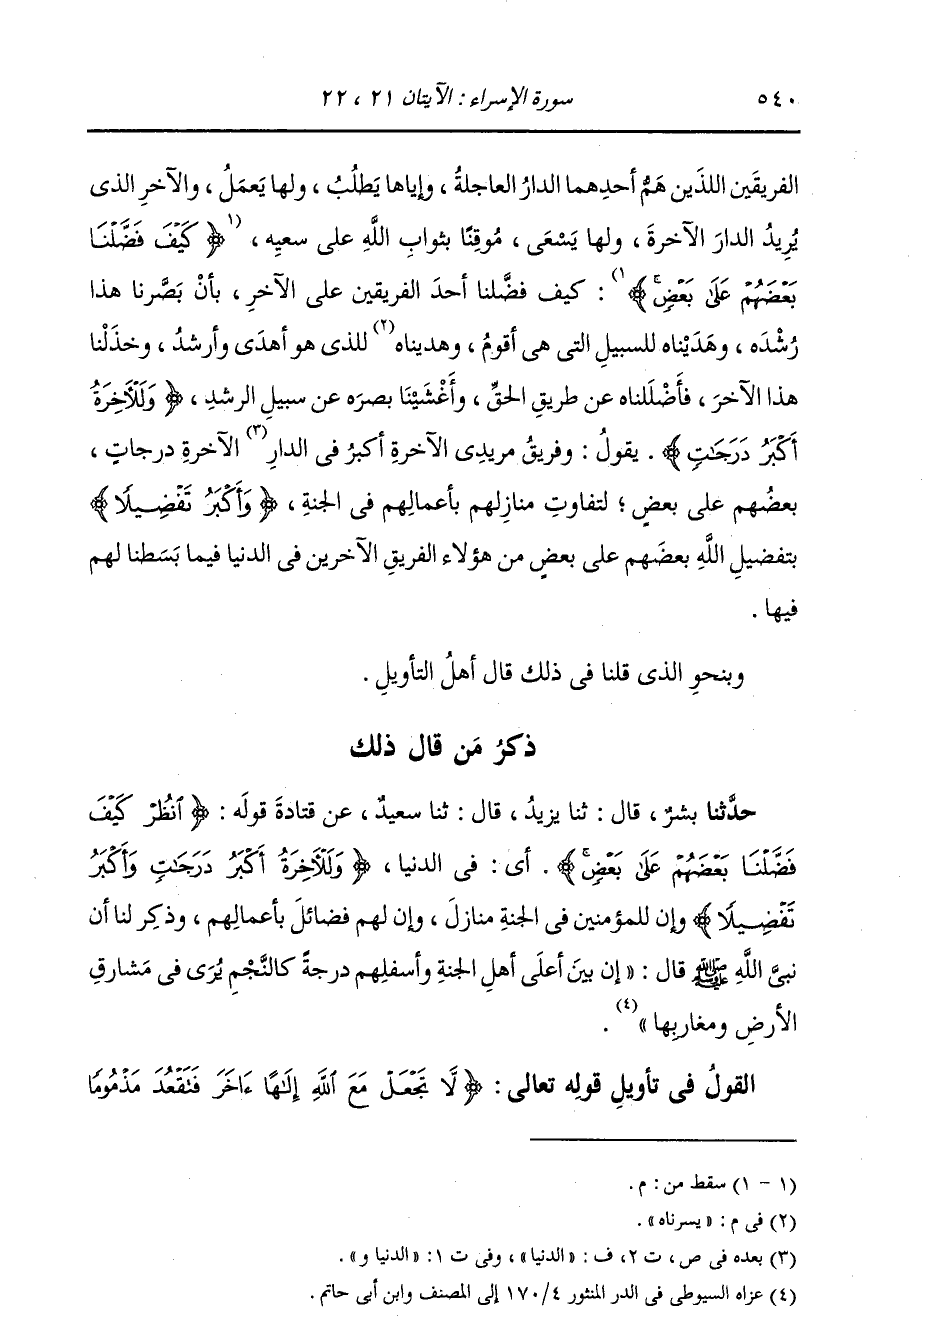 ٥٤٠ سورة الإسراء : الآيتان ٢١ ، ٢٢
الفريقَين اللذَين هَمُّ أحدِهما الدارُ العاجلةُ ، وإياها يَطلُبُ ، ولها يَعمَلُ ، والآخرِ الذى
يُرِيدُ الدارَ الآخرةَ ، ولها يَسْعَى ، مُوقِنًا بثوابِ اللَّهِ على سعيِه ، (١﴿ كَيْفَ فَضَّلْنَا
بَعْضَهُمْ عَلَىٰ بَعْضٍۚ ﴾١) : كيف فضَّلنا أحدَ الفريقين على الآخرِ ، بأنْ بَصَّرنا هذا
رُشْدَه ، وهَدَيْناه للسبيلِ التى هى أقومُ ، وهديناه(٢) للذى هو أهدَى وأرشدُ ، وخذَلْنا
هذا الآخرَ ، فأَضْلَلناه عن طريقِ الحقِّ ، وأَغْشَيْنَا بصرَه عن سبيلِ الرشدِ ، ﴿ وَلَلْآخِرَةُ
أَكْبَرُ دَرَجَٰتٍ ﴾ . يقولُ : وفريقُ مريدِى الآخرةِ أكبرُ فى الدارِ(٣) الآخرةِ درجاتٍ ،
بعضُهم على بعضٍ ؛ لتفاوتِ منازلِهم بأعمالِهم فى الجنةِ ، ﴿ وَأَكْبَرُ تَفْضِيلًا ﴾
بتفضيلِ اللَّهِ بعضَهم على بعضٍ من هؤلاء الفريقِ الآخرين فى الدنيا فيما بَسَطنا لهم
فيها .
وبنحوِ الذى قلنا فى ذلك قال أهلُ التأويلِ .
ذكرُ مَن قال ذلك
حدَّثنا بشرٌ ، قال : ثنا يزيدُ ، قال : ثنا سعيدٌ ، عن قتادةَ قولَه : ﴿ ٱنظُرْ كَيْفَ
فَضَّلْنَا بَعْضَهُمْ عَلَىٰ بَعْضٍۚ ﴾ . أى : فى الدنيا ، ﴿ وَلَلْآخِرَةُ أَكْبَرُ دَرَجَٰتٍ وَأَكْبَرُ
تَفْضِيلًا ﴾ وإن للمؤمنين فى الجنةِ منازلَ ، وإن لهم فضائلَ بأعمالِهم ، وذكِر لنا أن
نبىَّ اللَّهِ ﷺ قال : « إن بينَ أعلَى أهلِ الجنةِ وأسفلِهم درجةً كالنَّجْمِ يُرَى فى مَشارقِ
الأرضِ ومغاربِها »(٤) .
القولُ فى تأويلِ قولِه تعالى : ﴿ لَّا تَجْعَلْ مَعَ ٱللَّهِ إِلَٰهًا ءَاخَرَ فَتَقْعُدَ مَذْمُومًا
(١ - ١) سقط من : م .
(٢) فى م : « يسرناه » .
(٣) بعده فى ص ، ت ٢ ، ف : « الدنيا » ، وفى ت ١ : « الدنيا و » .
(٤) عزاه السيوطى فى الدر المنثور ١٧٠/٤ إلى المصنف وابن أبى حاتم .